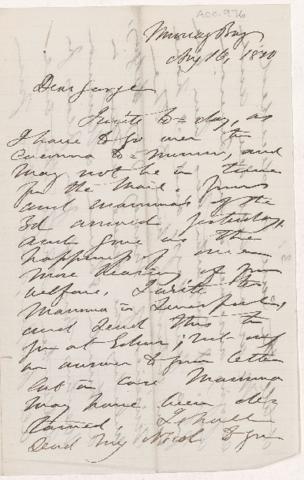 Acc. 976
Murray Bay
Aug 16, 18
Dear George
I write to-day, as
I have to go over to
Cacouna to-morrow, and
may not be in time
for the mail. Yours
and Mamma's of the
3d arrived yesterday,
and gave us the
happiness of once
more hearing of your
welfare. I write to
Mamma to Liverpool,
and send this to
you at ; not as
an answer to your letter
but in case Mamma
may have been de-
tained. I shall
send my next to you